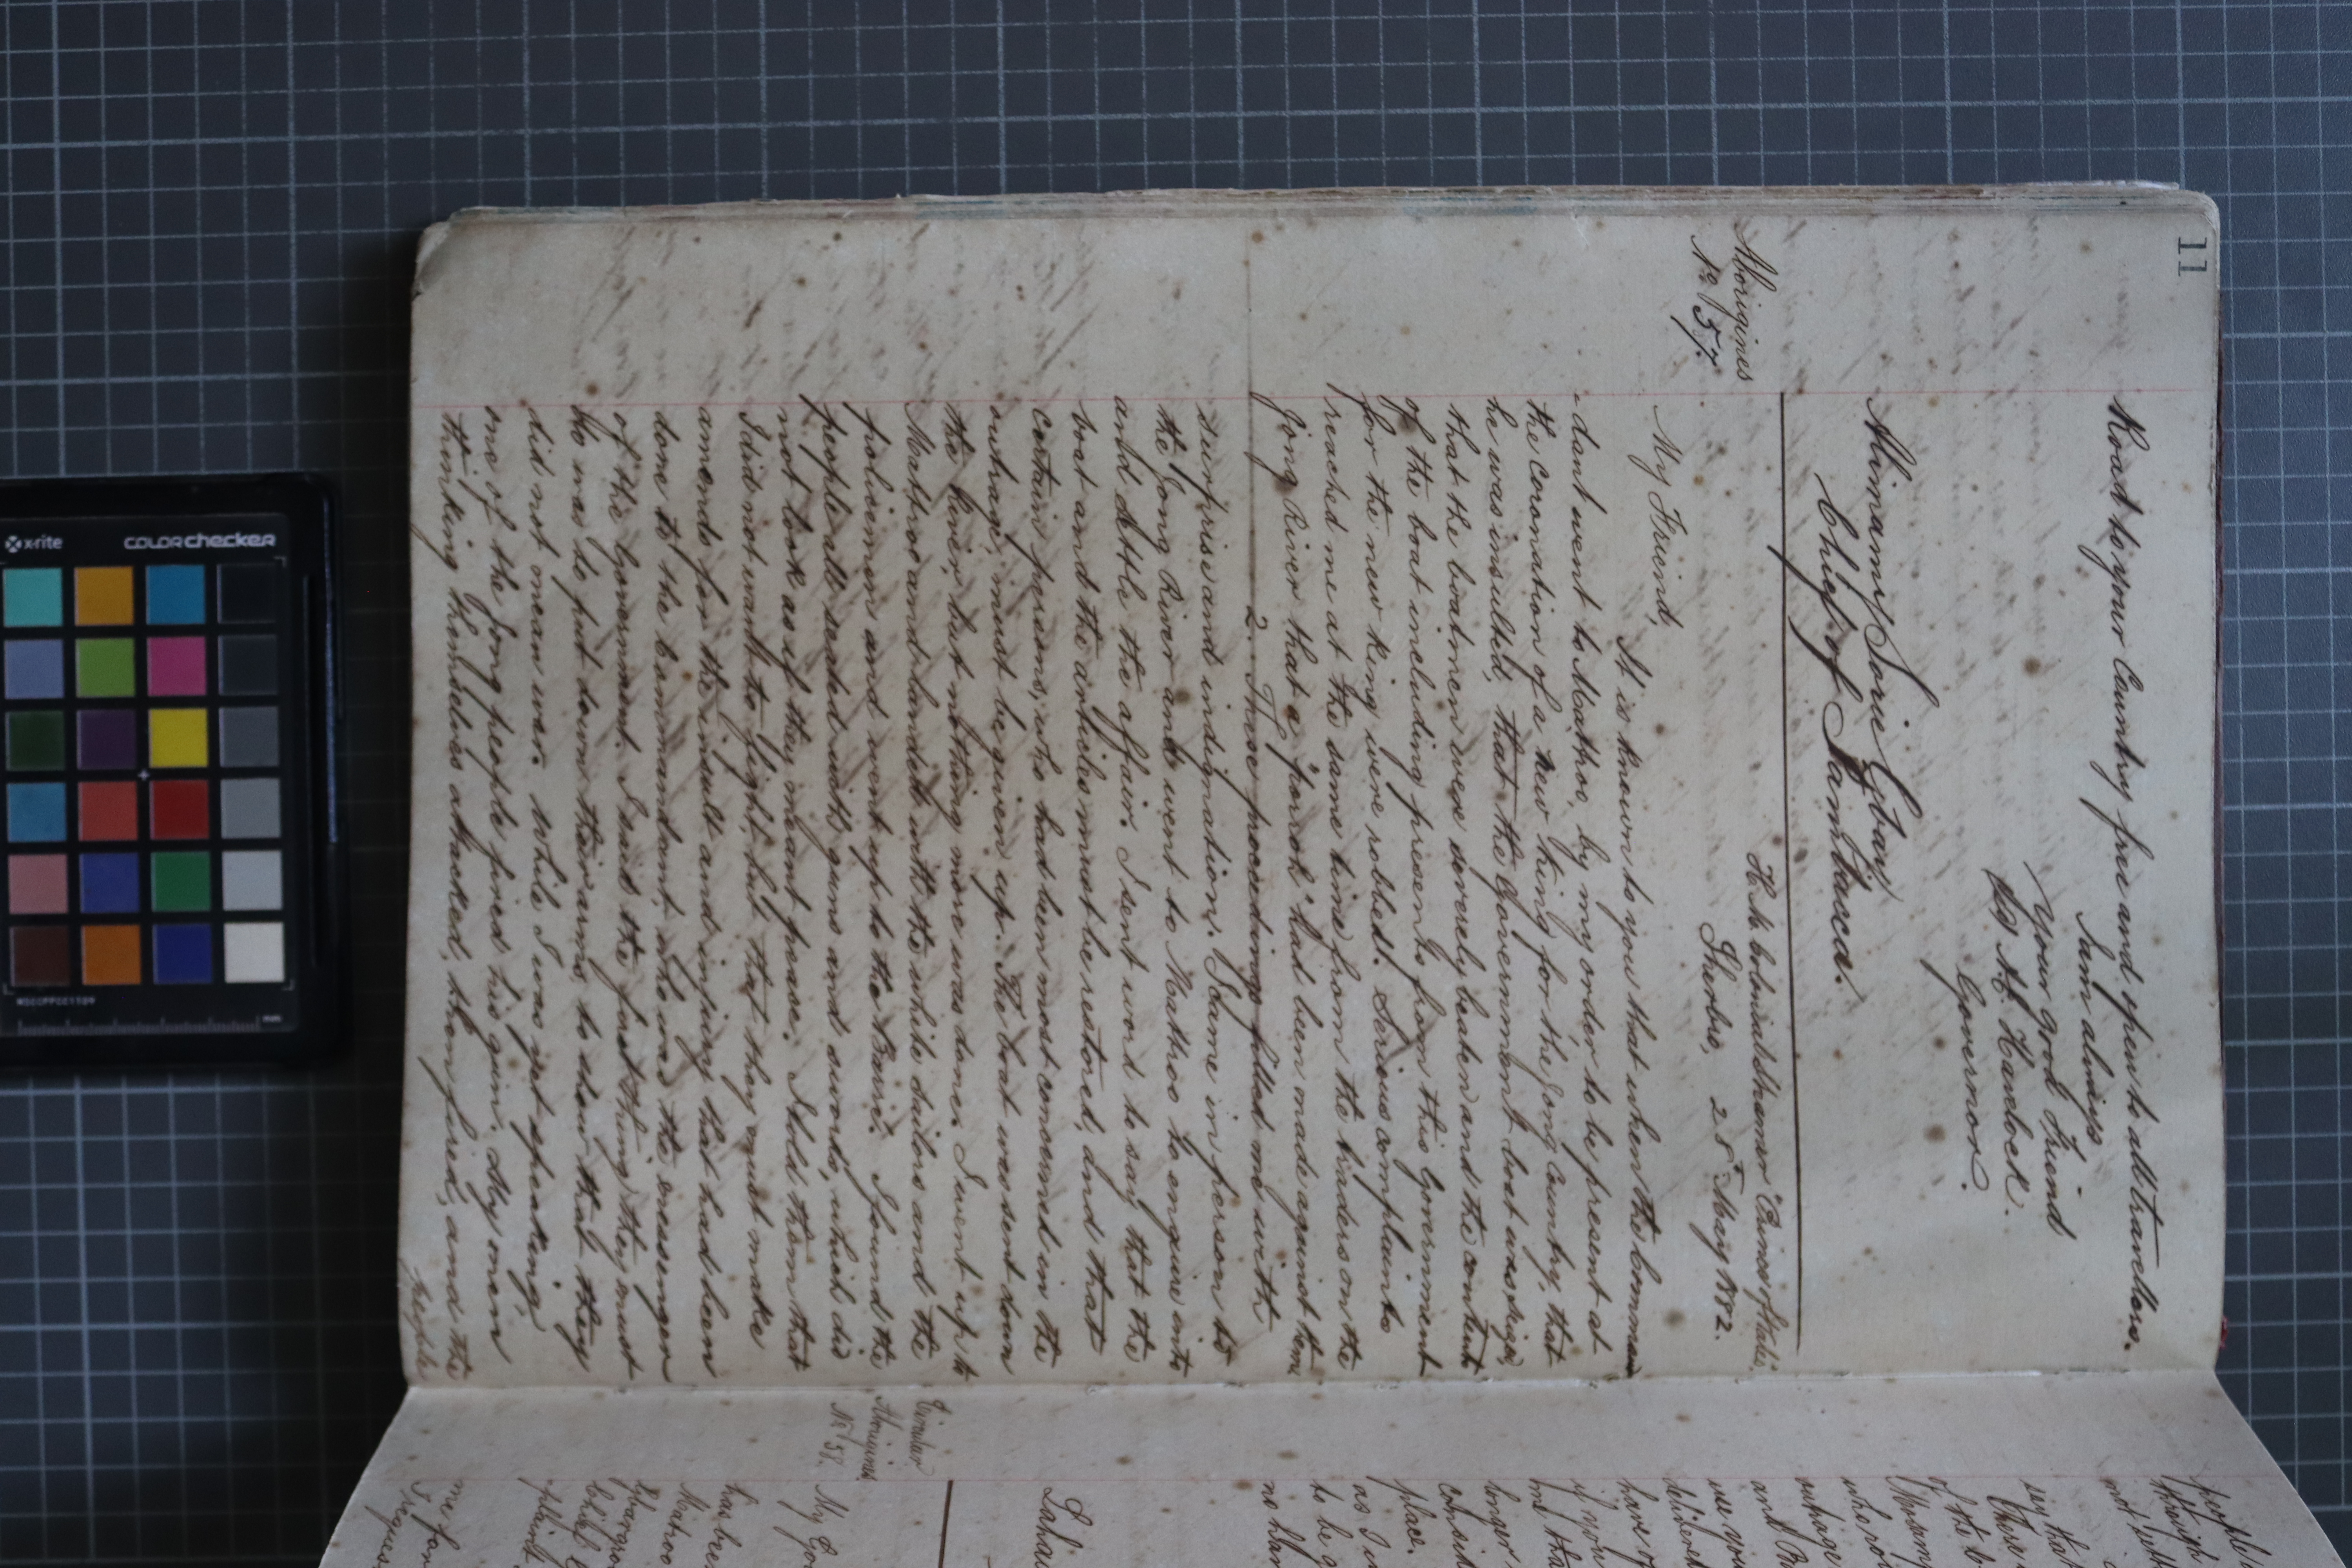 11
Road to your Country free and open to all travellers.
I am always
Your good friend
(Sg) A. E. Havelock.
Governor.
Alimamy Sorie Gbary
Chief of Sambaeca.
Aborigines
No 57.
H. M. Colonial Steamer "Prince of Wales"
Sherbro, 25th May 1882.
My Friend,
It is known to you that when the Comman
-dant went to Mattroo, by my order, to be present at
the coronation of a new King for the Jong Country, that
he was insulted, that the Government boat was seized,
that the boatmen were severely beaten and the contents
of the boat including presents from this Government
for the new King were robbed. Serious complaints
reached me at the same time from the traders on the
Jong River that a "porroh" had been made against them
2. These proceedings filled me with
surprise and indignation. I came in person to
the Jong River and went to Mattroo to enquire into
and settle the affair. I sent word to say that the
boat and the articles must be restored, and that
certain persons, who had been most concerned in the
outrage, must be given up. The boat was sent down
the River, but nothing more was done. I went up to
Mattroo and landed with the white sailors and the
policemen and went up to the Barrie. I found the
people all seated with guns and swords, which did
not look as if they meant peace. I told them that
I did not want to fight, but that they must make
amends for the insult and injury that had been
done to the Commandant, who was the messenger
of the Government. I said the first thing they must
do was to put down their arms, to show that they
did not mean war. While I was yet speaking
one of the Jong people fired his gun. My men,
thinking themselves attacked, then fired, and the
people
people
not
Circular
Aborigines
No 58.
My
Mattroo
me